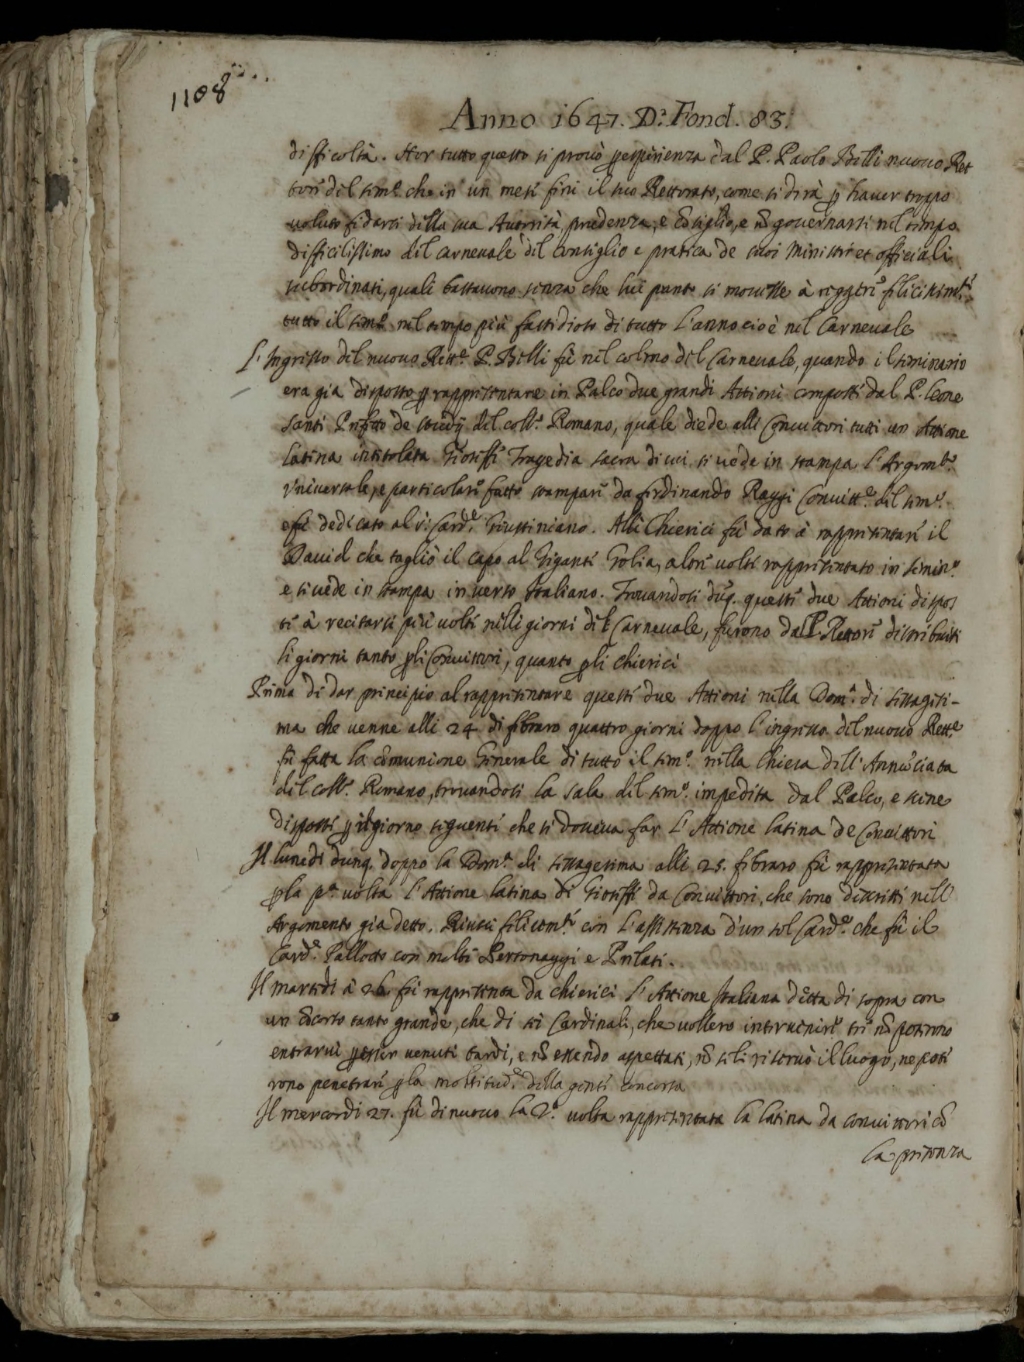 1108
Anno 1647. D.ª Fond. 83.
difficoltà. Hor tutto questo si provò p esperienza dal P. Paolo Belli nuovo Ret
tore del Sem.º che in un mese finì il suo Rettorato, come si dirà p haver troppo
voluto fidarsi della sua Autorità, prudenza, e cõsiglio, e nõ governarsi nel tempo
difficilissimo del carnevale del consiglio e pratica de suoi Ministri et officiali
subordinati, quali bastavono senza che lui punto si movesse à reggere felicissim.te
tutto il Sem.º nel tempo più fastidioso di tutto l'anno cioè nel Carnevale
L'Ingresso del nuovo Rett.e P. Belli fù nel colmo del Carnevale, quando il seminario
era già disposto p rappresentare in Palco due grandi Attioni composti dal P. Leone
Santi Prefetto de studij del Coll.º Romano, quale diede alli Convittori tutti un Attione
latina intitolata Gioseffe Tragedia sacra di cui si vede in stampa l'Argom.to
Universale, e particolare fatto stampare da Ferdinando Raggi Convitt.e del Sem.º
e fù dedicato al S.r Card.le Giustiniano. Alli Chierici fù dato à rappresentare il
David che tagliò il capo al Gigante Golia, altre volte rappresentato in Semin.º
e si vede in stampa in verso Italiano. Trovandosi duq. queste due Attioni dispos
te à recitarsi più volte nelli giorni del Carnevale, furono dal P. Rettore distribuiti
li giorni tanto p li Convittori, quanto p li chierici
Prima di dar principio al rappresentare queste due Attioni nella Dom.ª di sessagesi-
ma che venne alli 24. di febraro quattro giorni doppo l'ingresso del nuovo Rett.e
fù fatta la cõmunione Generale di tutto il Sem.º nella Chiesa dell'Annũciata
del Coll.º Romano, trovandosi la sala del Sem.º impedita dal Palco, e scene
disposte p il giorno seguente che si doveva far l'Attione latina de Convittori
Il lunedi dunq. doppo la Dom.ª di sessagesima alli 25. febraro fù rappresentata
p la p.ª volta l'Attione latina di Gioseffe da Convittori, che sono descritti nell'
Argomento già detto. Riuscì felicem.te con l'assistenza d'un sol Card.e che fù il
Card.e Pallotto con molti Personaggi e Prelati.
Il martedi à 26 fù rappresentata da chierici l'Attione Italiana detta di sopra con
un cõcorso tanto grande, che di sei Cardinali, che vollero intervenire tre nõ potero
entrarvi p esser venuti tardi, e nõ essendo aspettati, nõ se li riservò il luogo, ne pote
rono penetrare p la moltitud.e della gente concorsa
Il mercordi 27. fù di nuovo la 2.ª volta rappresentata la latina da convittori cõ
la presenza